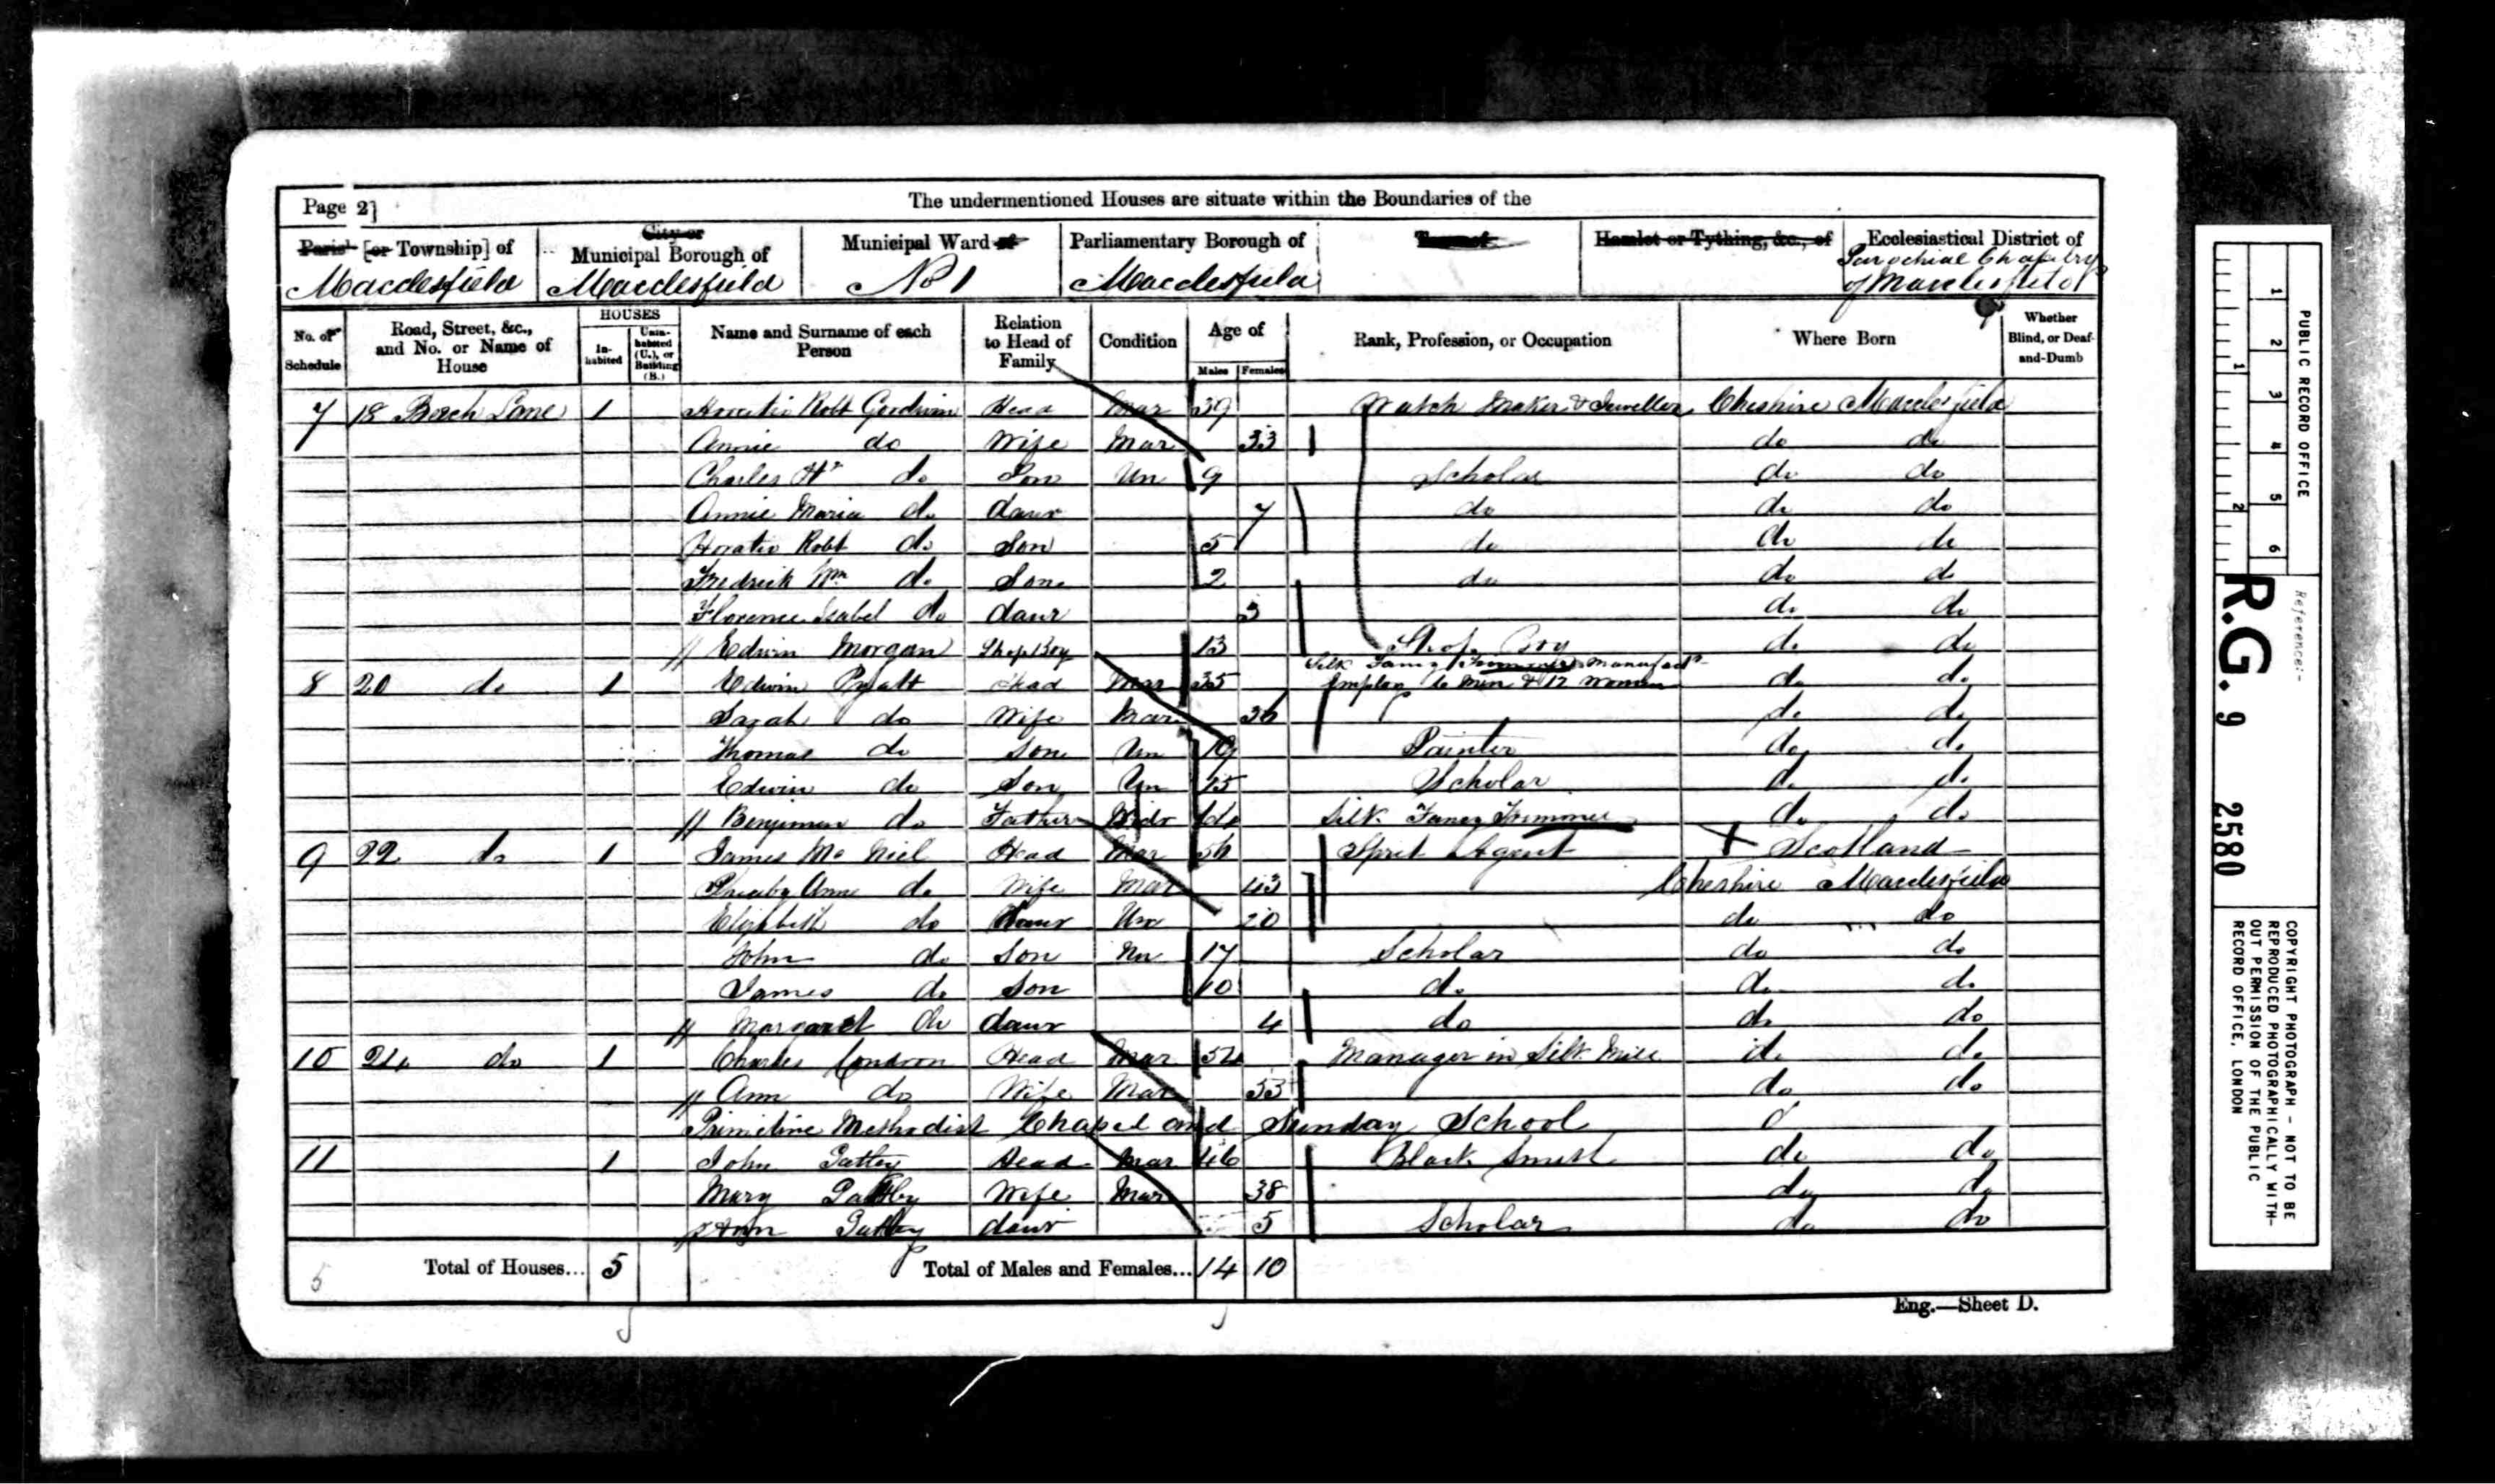 The undermentioned Houses are situate within the Boundaries of the
Page 2]
Parish [or Township] of Macclesfield
City or Municipal Borough of Macclesfield
Municipal Ward of No 1
Parliamentary Borough of Macclesfield
Town of
Hamlet or Tything, &c., of
Ecclesiastical District of Parochial Chapelry of Macclesfield
No. of Schedule
Road, Street, &c., and No. or Name of House
HOUSES
In-habited
Unin-habited (U.), or Building (B.)
Name and Surname of each Person
Relation to Head of Family
Condition
Age of
Males Females
Rank, Profession, or Occupation
Where Born
Whether Blind, or Deaf-and-Dumb
7 18 Beech Lane 1 Horatio Robt Goodwin Head Mar 39 Watch Maker & Jeweller Cheshire Macclesfield
Annie do Wife Mar 33 do do
Charles Hy do Son Un 9 Scholar do do
Annie Maria do daur 7 do do do
Horatio Robt do Son 5 do do do
Fredrick Wm do Son 2 do do do
Florence Isabel do daur 3 do do
Edwin Morgan Shop Boy 13 Shop Boy do do
8 20 do 1 Edwin Pyatt Head Mar 35 Silk Fancy Trimming Manufact Employ 6 Men & 12 Women do do
Sarah do Wife Mar 36 do do
Thomas do Son Un 19 Painter do do
Edwin do Son Un 15 Scholar do do
Benjimen do Father Widr Silk Fancy Trimmer do do
9 22 do 1 James Mc Niel Head Mar 56 Spret Agent Scotland
Pheaby Ann do Wife Mar 43 Cheshire Macclesfield
Elizabeth do Daur Un 20 do do
John do Son Un 17 Scholar do do
James do Son 10 do do do
Margaret do daur 4 do do do
10 24 do 1 Charles Condron Head Mar 54 Manager in Silk Mill do do
Ann do Wife Mar 53 do do
Primetive Methodist Chapel and Sunday School
11 1 John Gatley Head Mar 46 Black Smith do do
Mary Gatley Wife Mar 38 do do
Ann Gatley daur 5 Scholar do do
5 Total of Houses... 5 Total of Males and Females... 14 10
Eng.—Sheet D.
PUBLIC RECORD OFFICE
1 2 3 4 5 6
1 2
Reference:-
R.G. 9 2580
COPYRIGHT PHOTOGRAPH - NOT TO BE
REPRODUCED PHOTOGRAPHICALLY WITH-
OUT PERMISSION OF THE PUBLIC
RECORD OFFICE, LONDON